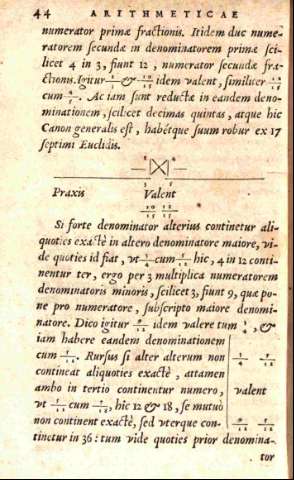 44 ARITHMETICAE
numerator primæ fractionis. Itidem duc nume-
ratorem secundæ in denominatorem primæ sci-
licet 4 in 3, fiunt 12, numerator secundæ fra-
ctionis. Igitur & 10/15 idem valent, similiter 12/15
cum. Ac iam sunt reductæ in eandem deno-
minationem, scilicet decimas quintas, atque hic
Canon generalis est, habétque suum robur ex 17
septimi Euclidis.
Praxis Valent
10 12
15 15
Si forte denominator alterius continetur ali-
quoties exactè in altero denominatore maiore, vi-
de quoties id fiat, vt cum hic, 4 in 12 conti-
nentur ter, ergo per 3 multiplica numeratorem
denominatoris minoris, scilicet 3, fiunt 9, quæ po-
ne pro numeratore, subscripto maiore denomi-
natore. Dico igitur 9/12 idem valere tum 3/4, &
iam habere eandem denominationem
cum. Rursus si alter alterum non
contineat aliquoties exactè, attamen
ambo in tertio continentur numero, valent
vt cum, hic 12 & 18, se mutuò
non continent exactè, sed vterque con-
tinetur in 36: tum vide quoties prior denomina-
tor